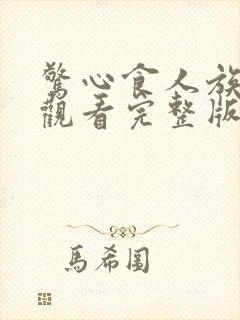 驚心食人族
觀看完整版
馬希圖